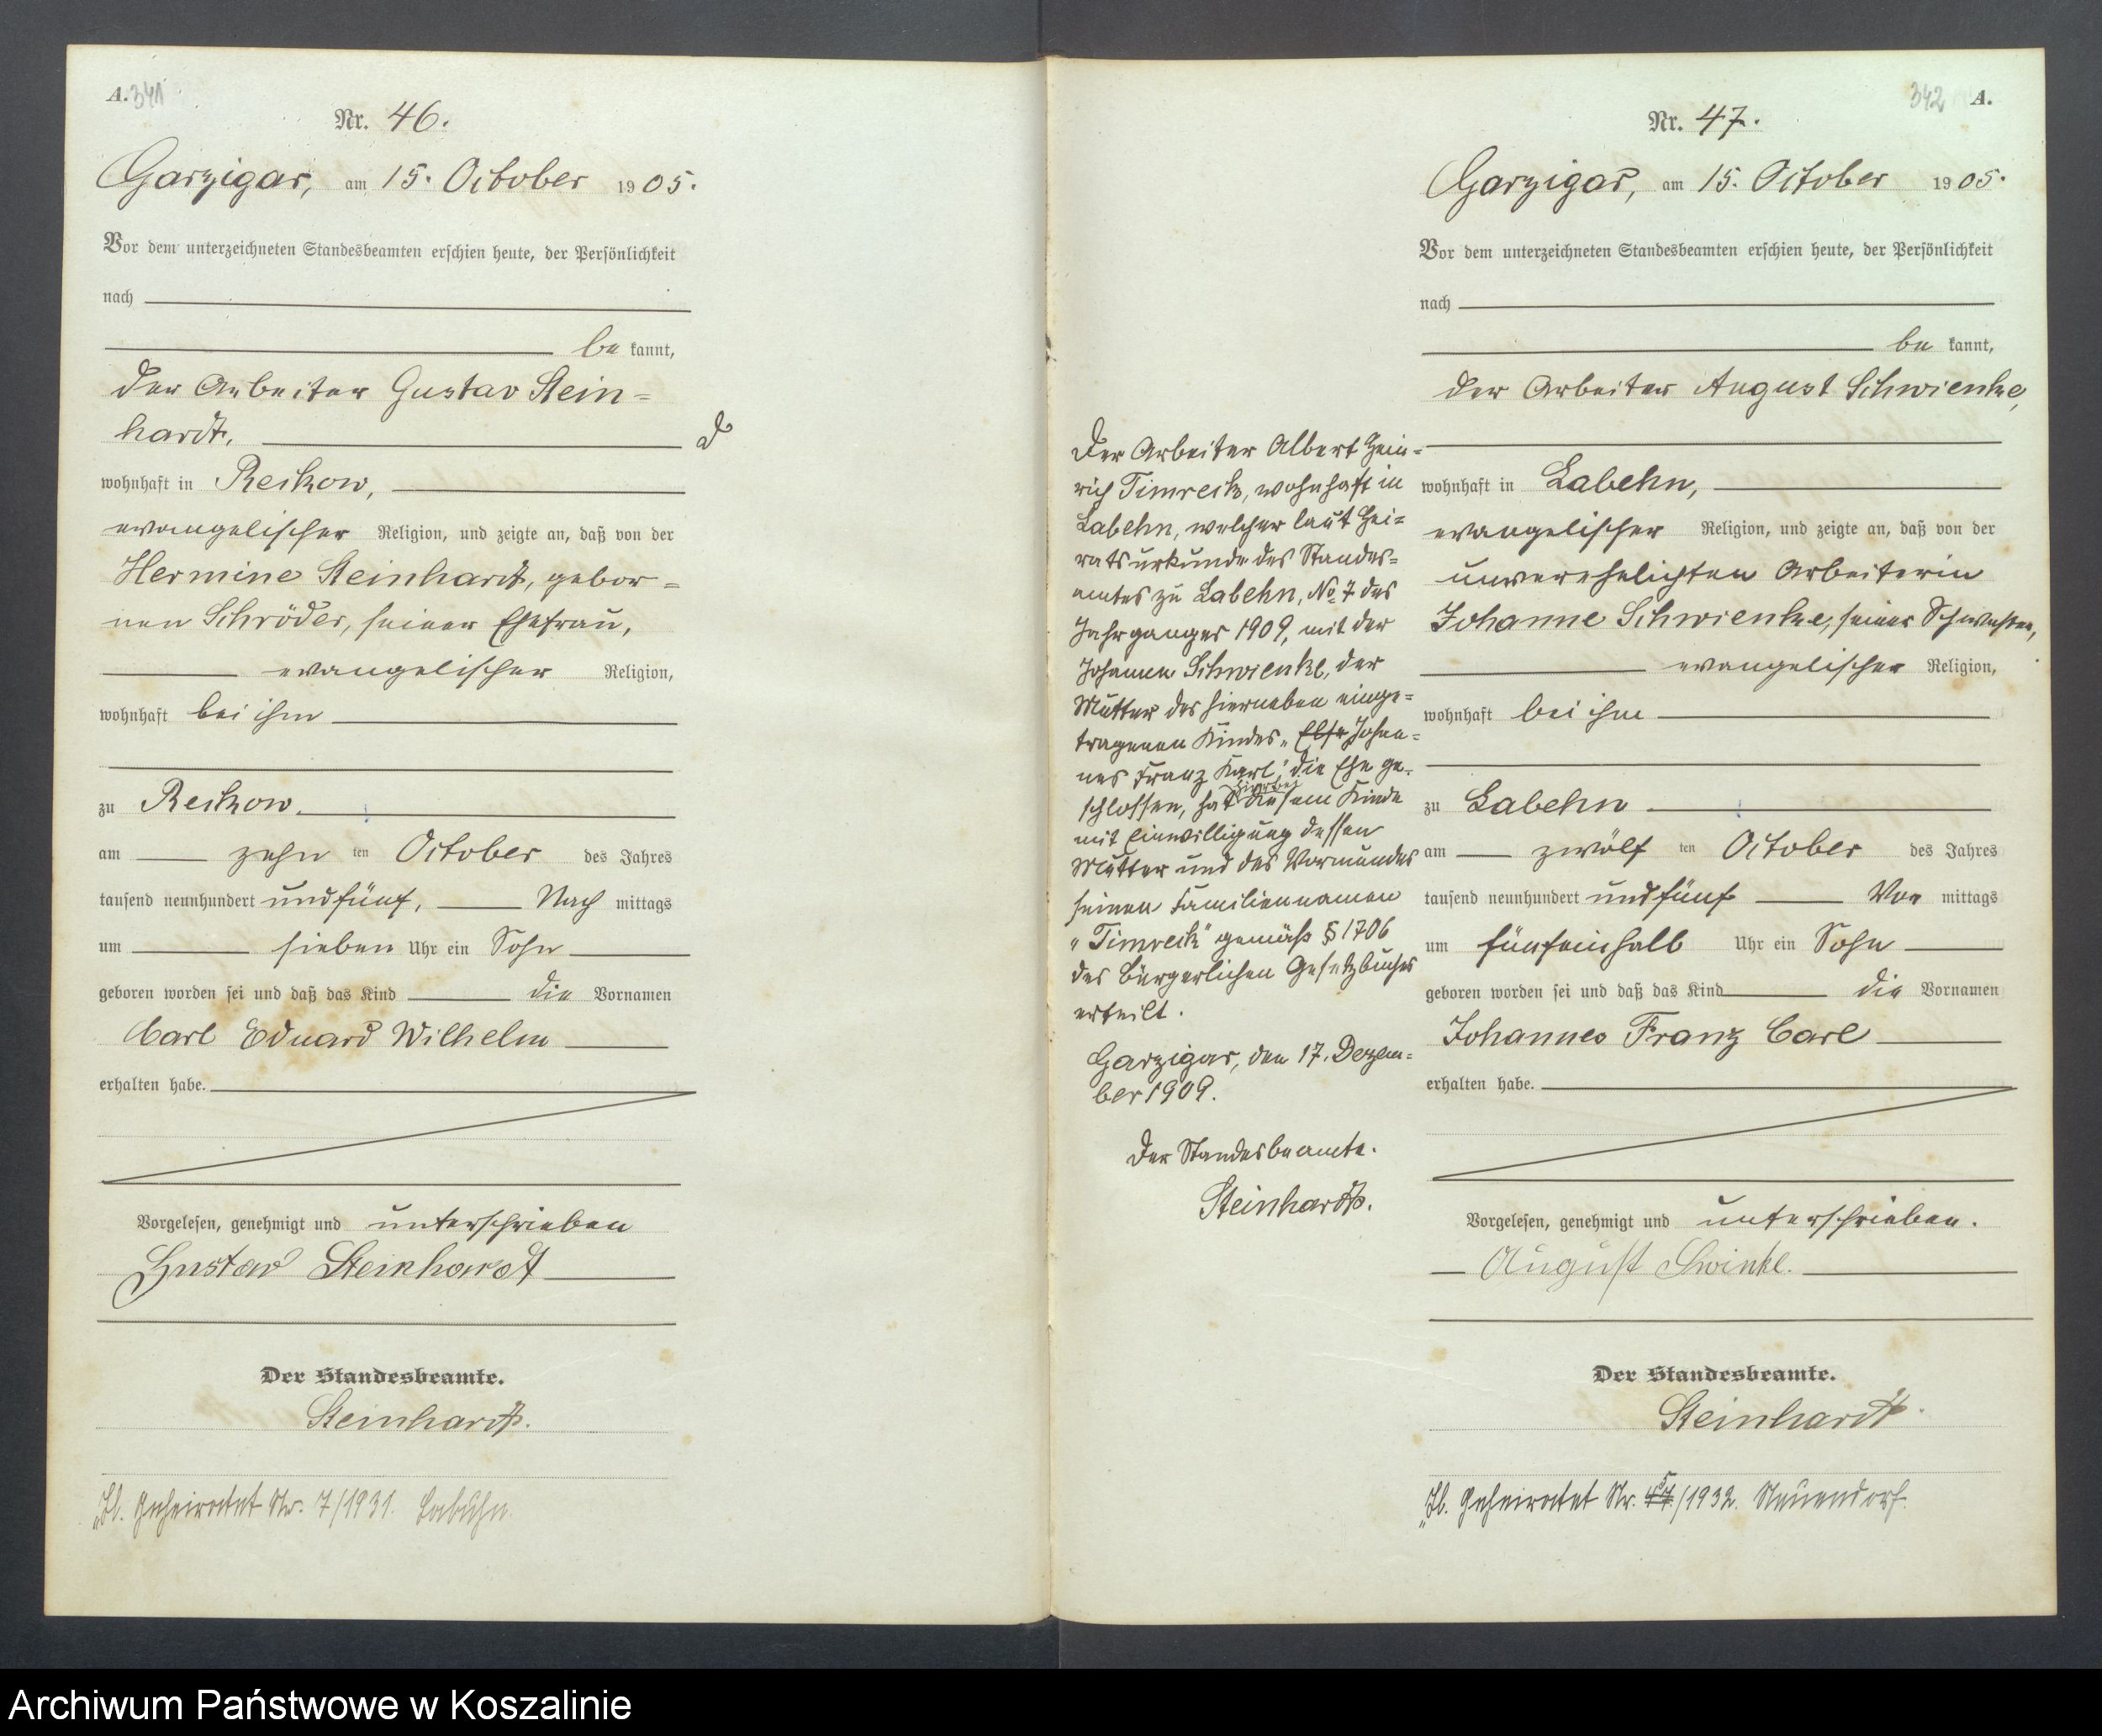 A. 341
Nr. 46.
Garzigar, am 15. October 1905.
Vor dem unterzeichneten Standesbeamten erschien heute, der Persönlichkeit
nach
be kannt,
der Arbeiter Gustav Stein=
hardt,
wohnhaft in Reckow,
evangelischer Religion, und zeigte an, daß von der
Hermine Steinhardt, gebor=
nen Schröder, seiner Ehefrau,
evangelischer Religion,
wohnhaft bei ihm
zu Reckow
am zehn ten October des Jahres
tausend neunhundert undfünf, Nach mittags
um sieben Uhr ein Sohn
geboren worden sei und daß das Kind die Vornamen
Carl Eduard Wilhelm
erhalten habe.
Vorgelesen, genehmigt und unterschrieben
Gustav Steinhardt
Der Standesbeamte.
Steinhardt.
Geheiratet Nr. 7/1931. Labuhn.
342 A.
Nr. 47.
Garzigar, am 15. October 1905.
Vor dem unterzeichneten Standesbeamten erschien heute, der Persönlichkeit
nach
be kannt,
der Arbeiter August Schwienke,
wohnhaft in Labehn,
evangelischer Religion, und zeigte an, daß von der
unverehelichten Arbeiterin
Johanne Schwienke, seiner Schwester,
evangelischer Religion,
wohnhaft bei ihm
zu Labehn
am zwölf ten October des Jahres
tausend neunhundert undfünf Vor mittags
um fünfeinhalb Uhr ein Sohn
geboren worden sei und daß das Kind die Vornamen
Johannes Franz Carl
erhalten habe.
Vorgelesen, genehmigt und unterschrieben.
August Swinkl.
Der Standesbeamte.
Steinhardt.
Geheiratet Nr. 5/1932. Neuendorf.
Der Arbeiter Albert Hein=
rich Timreck, wohnhaft in
Labehn, welcher laut Hei=
ratsurkunde des Standes=
amtes zu Labehn, No 7 des
Jahrganges 1909, mit der
Johanne Schwienke, der
Mutter des hierneben einge=
tragenen Kindes „Johan=
nes Franz Karl", die Ehe ge=
schlossen, hat hierbei diesem Kinde
mit Einwilligung dessen
Mutter und des Vormundes
seinen Familiennamen
„Timreck" gemäß § 1706
des Bürgerlichen Gesetzbuches
erteilt.
Garzigar, den 17. Dezem=
ber 1909.
Der Standesbeamte.
Steinhardt.
Archiwum Państwowe w Koszalinie